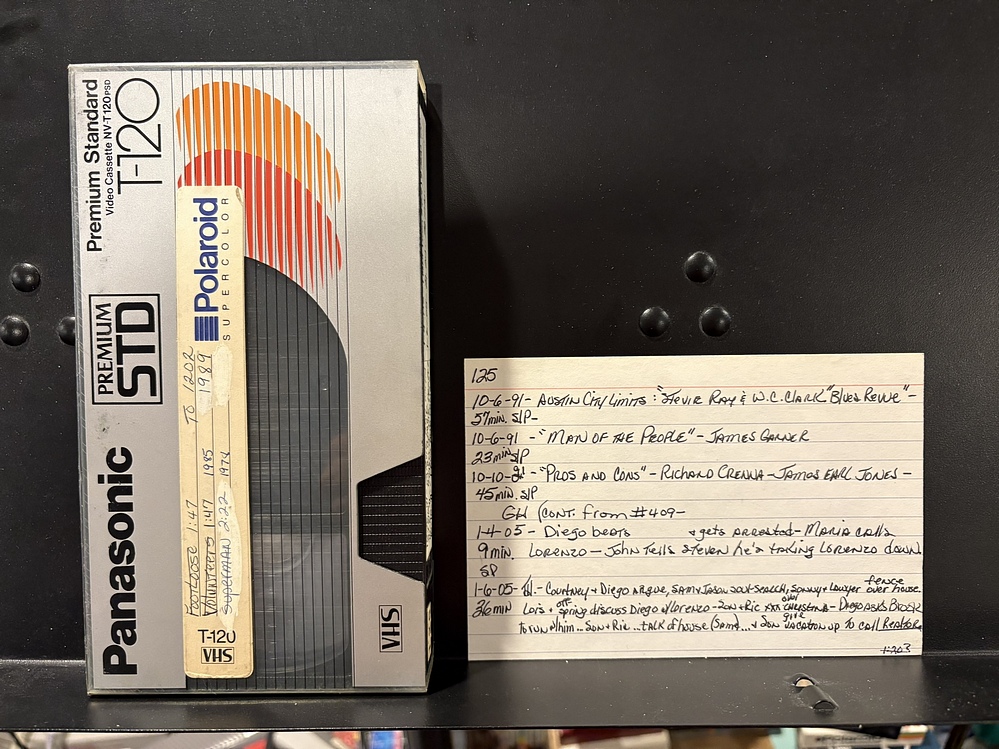 Premium Standard
Video Cassette NV-T120PSD
T-120
PREMIUM
STD
Panasonic
VHS
Polaroid
SUPERCOLOR
FOOTLOOSE 1:47 TO 1202
VOLUNTEERS 1:47 1985 1989
SUPERMAN 2:22
T-120
VHS
125
10-6-91- AUSTIN CITY LIMITS: "STEVIE RAY & W.C. CLARK "BLUES REVUE" -
57min. S/P-
10-6-91 - "MAN OF THE PEOPLE" - JAMES GARNER
23min S/P
10-10-91 - "PROS AND CONS" - RICHARD CRENNA - JAMES EARL JONES -
45min. S/P
GH (CONT. from #409-
1-4-05- Diego beats & gets arrested - Maria calls
9min. LORENZO - John Tells Steven he's taking Lorenzo down
SP
fence
1-6-05- Courtney & Diego argue, Sam & Jason search, Sonny & Lawyer over house.
36min Lois & spring discuss Diego & Lorenzo - Son & Ric - Diego asks Brook
To run w/him.. Son & Ric.. talk of house (Sam).. & Son up to call Realtor